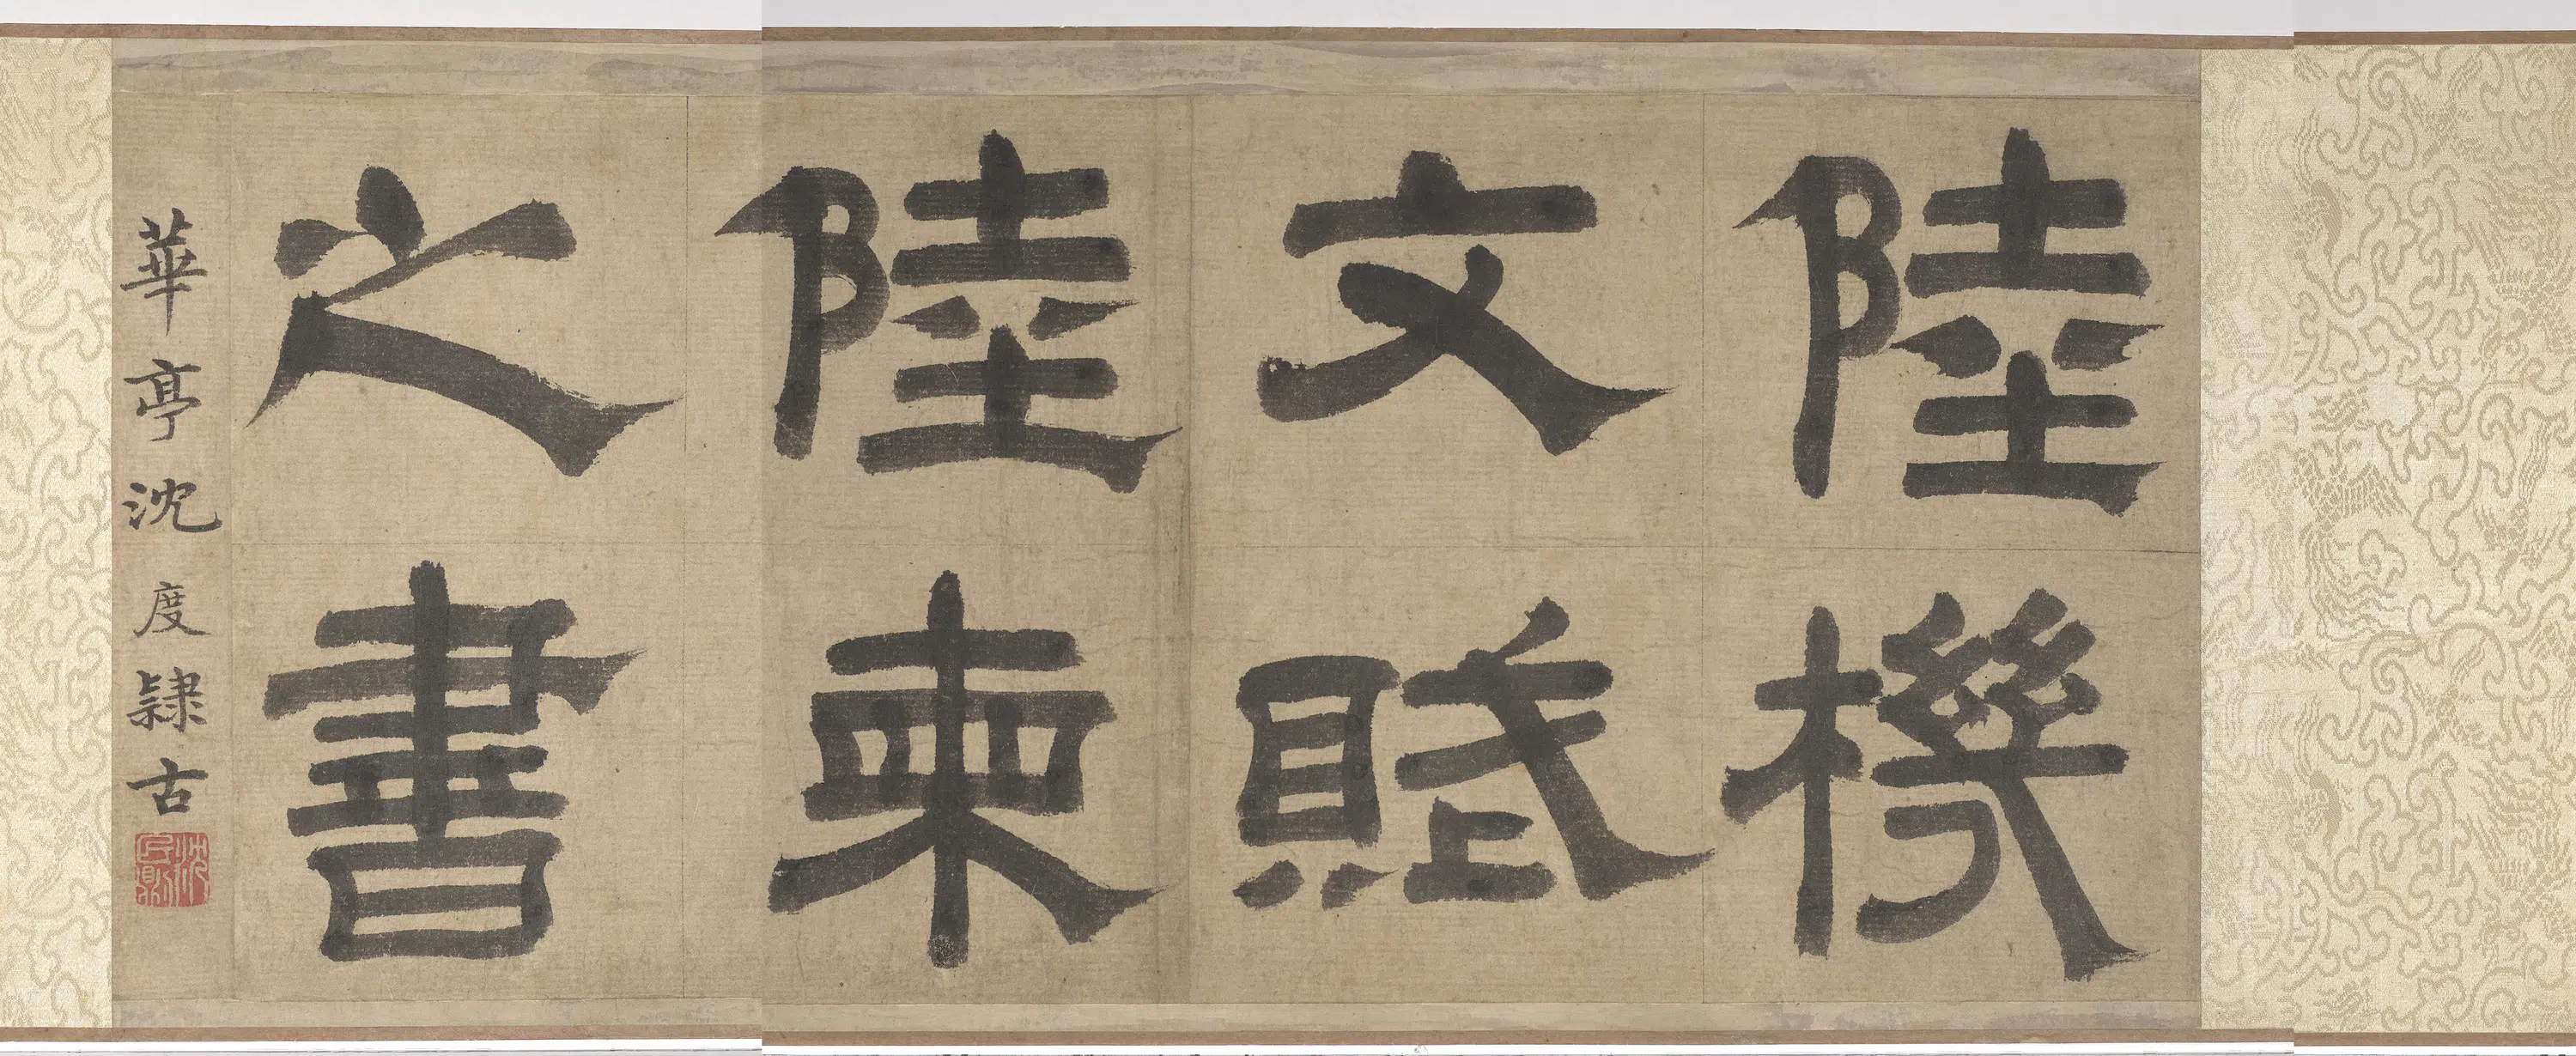 陸機
文賦
陸柬
之書
華亭沈度隸古
沈民則